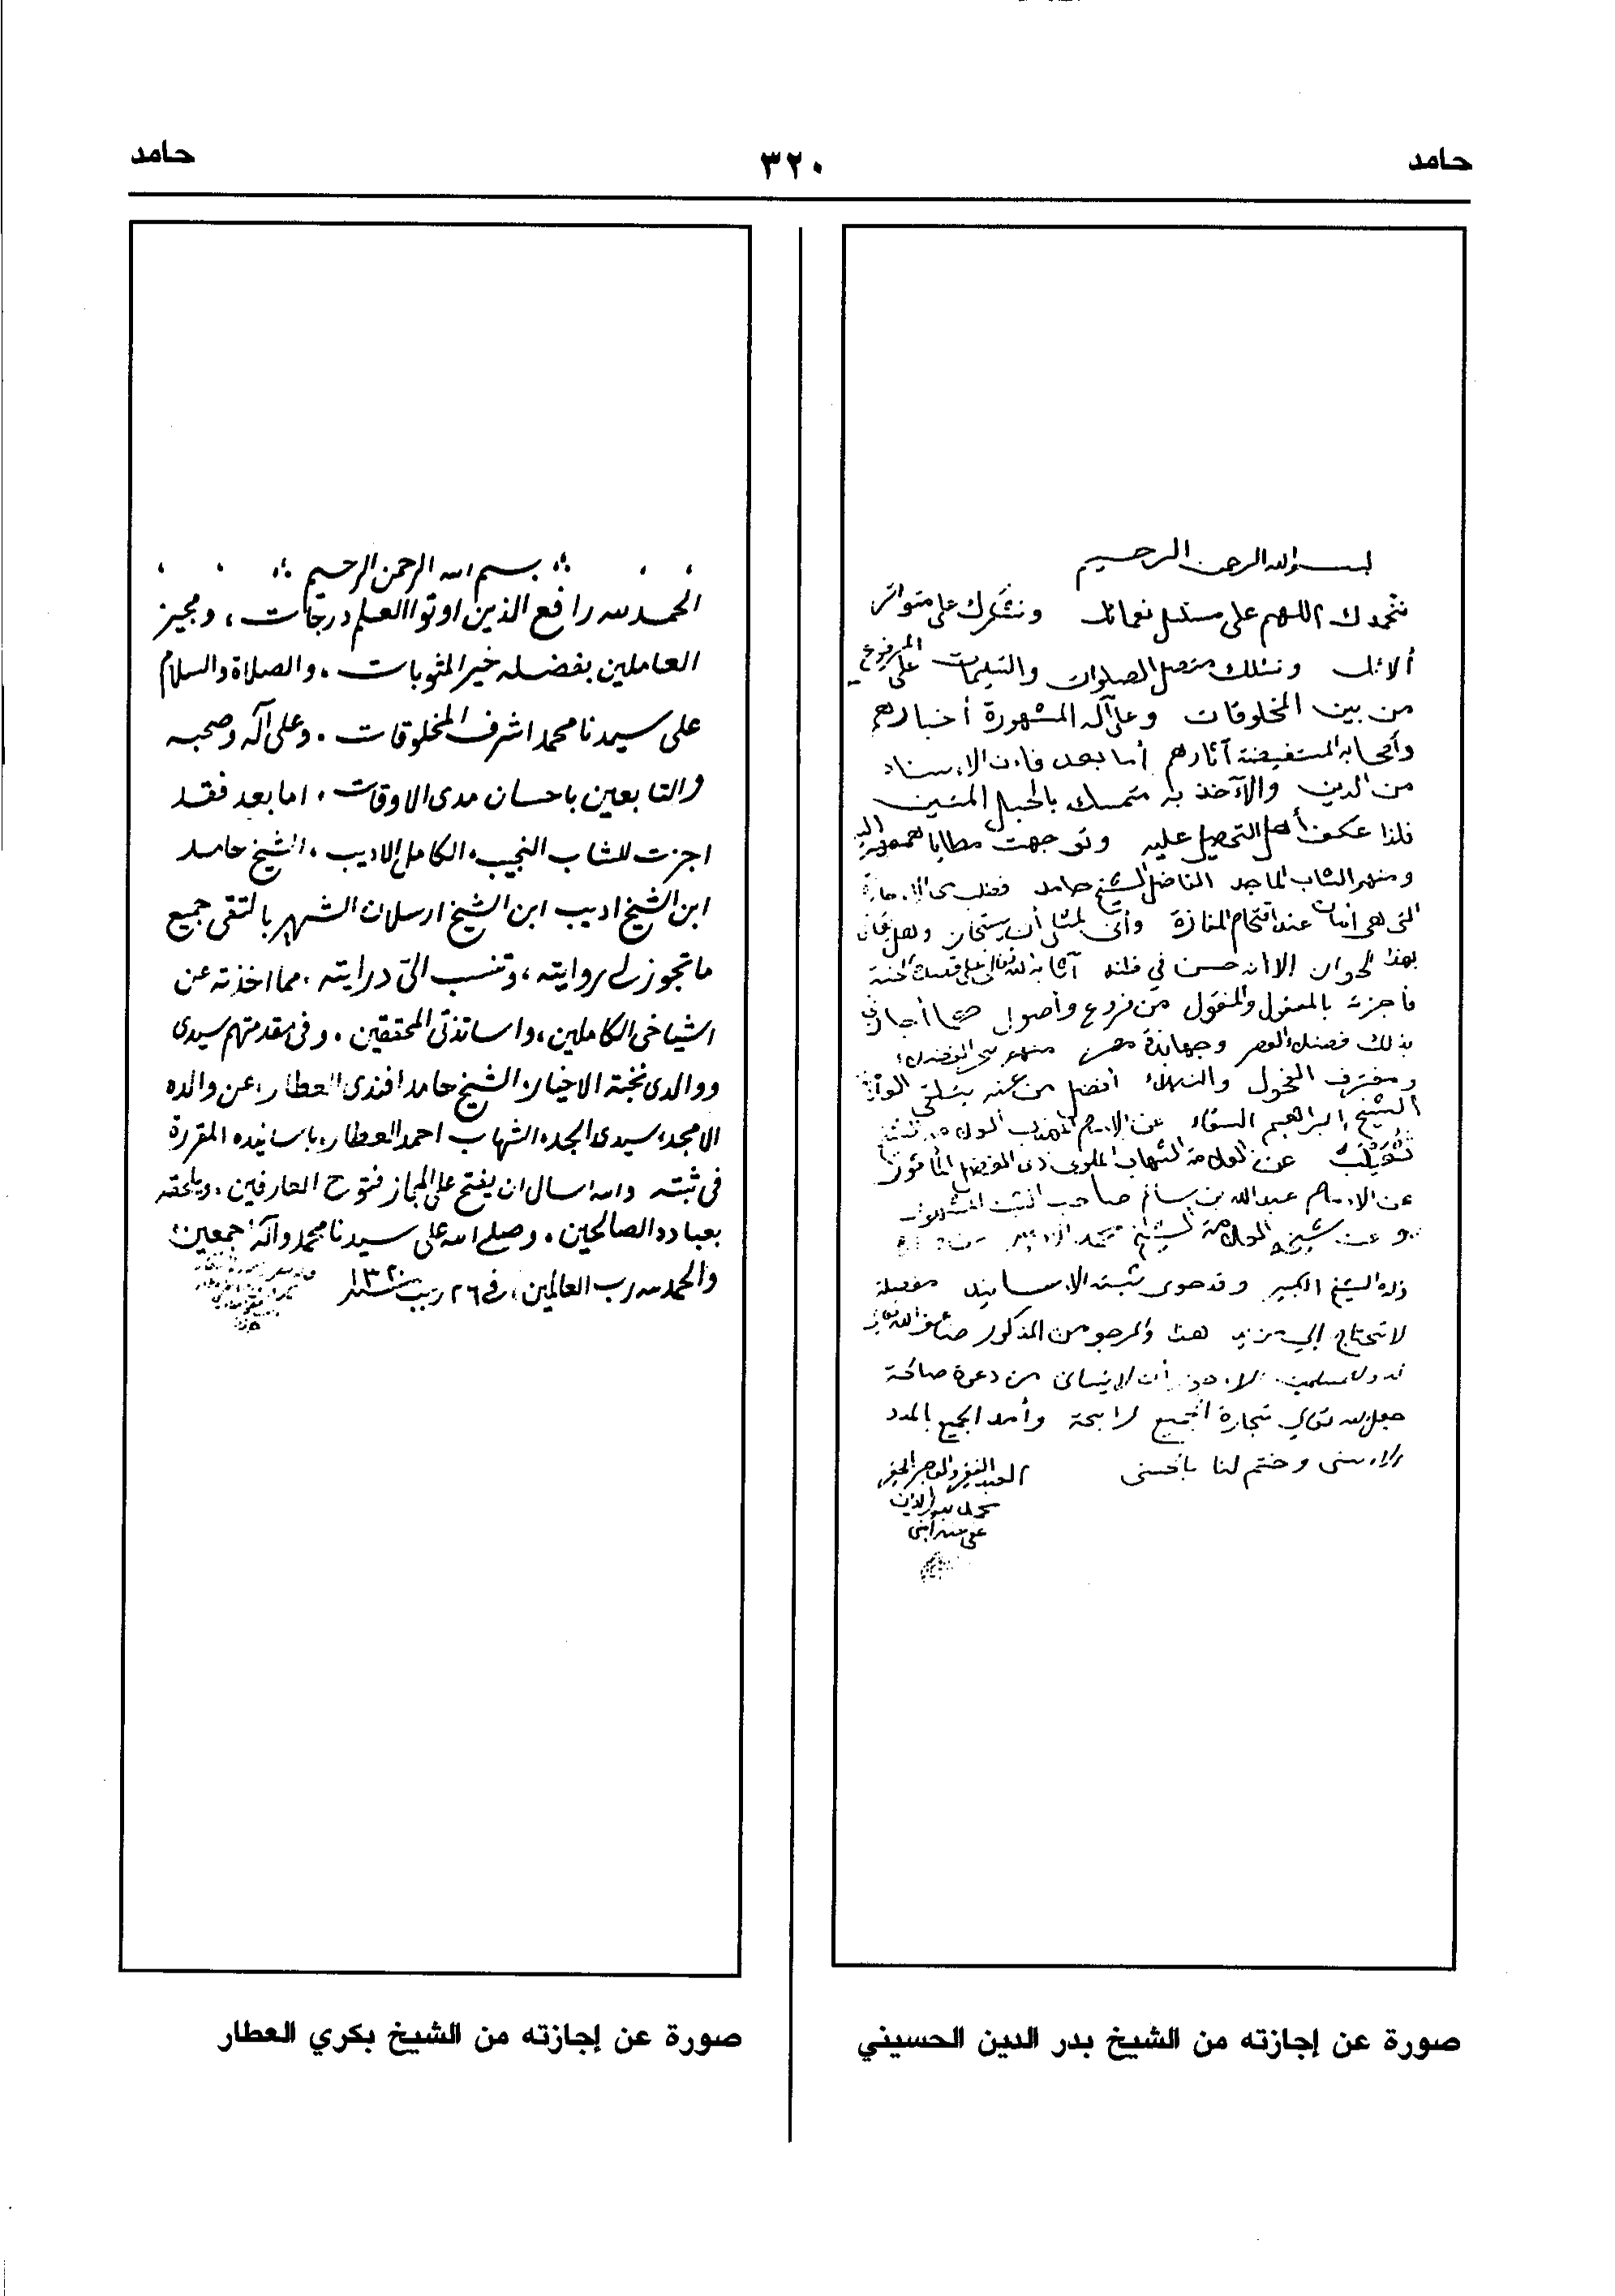 حامد
٣٢٠
حامد
بسم الله الرحمن الرحيم
نحمدك اللهم على مسلسل نعمائك ونشكرك على متواتر
آلائك ونسئلك متصل الصلوات والتسليمات على المرفوع
من بين المخلوقات وعلى آله المشهورة أخبارهم
وأصحابه المستفيضة آثارهم أما بعد فإن الإسناد
من الدين والآخذ به متمسك بالحبل المتين
فلذا عكف أهل التحصيل عليه وتوجهت مطايا همهم إليه
ومنهم الشاب الماجد الفاضل الشيخ حامد فطلب مني الإجازة
التي هي أمان عند اقتحام المفازة وأنى لمثلي أن يستجاز
بهذا إلا أنه حسن فيّ ظنه أثابه الله تعالى على قصده الجنة
فأجزته بالمعقول والمنقول من فروع وأصول كما أجازني
بذلك فضلاء العصر وجهابذة مصر منهم بحر الفضلاء
ومغترف الفحول والنبلاء أفضل من عنه يتلقى
الشيخ إبراهيم السقاء عن الإمام المهذب العلامة
ثعيلب عن العلامة الشهاب الملوي ذي الفضل المأثور
عن الإمام عبد الله بن سالم صاحب الثبت المشهور
وعن شيخه العلامة الشيخ محمد الأمير عن
والده الشيخ الكبير وقد حوى ثبته الأسانيد مفصلة
لا تحتاج إلى مزيد هذا والمرجو من المذكور ضاعف الله تعالى
أن لا ينساني من دعوة صالحة
جعل الله تعالى تجارة الجميع رابحة وأمد الجميع بالمدد
الأسنى وختم لنا بالحسنى
العبد الفقير والعاجز الحقير
محمد بدر الدين
عفي عنه آمين
صورة عن إجازته من الشيخ بدر الدين الحسيني
بسم الله الرحمن الرحيم
الحمد لله رافع الذين اوتوا العلم درجات، ومجيز
العاملين بفضله خير المثوبات، والصلاة والسلام
على سيدنا محمد اشرف المخلوقات. وعلى آله وصحبه
والتابعين باحسان مدى الاوقات، اما بعد فقد
اجزت للشاب النجيب، الكامل الاديب، الشيخ حامد
ابن الشيخ اديب ابن الشيخ ارسلان الشهير بالتقى جميع
ما تجوز لى روايته، وتنسب الىّ درايته، مما اخذته عن
اشياخى الكاملين، واساتذتى المحققين. وفى مقدمتهم سيدى
ووالدى نخبة الاخيار، الشيخ حامد افندى العطار، عن والده
الامجد، سيدى الجد، الشهاب احمد العطار، باسانيده المقررة
فى ثبته والله اسال ان يفتح على المجاز فتوح العارفين، ويلحقه
بعباده الصالحين، وصلى الله على سيدنا محمد وآله اجمعين،
والحمد لله رب العالمين، فى ٢٦ رجب سنة ١٣٢٠
صورة عن إجازته من الشيخ بكري العطار